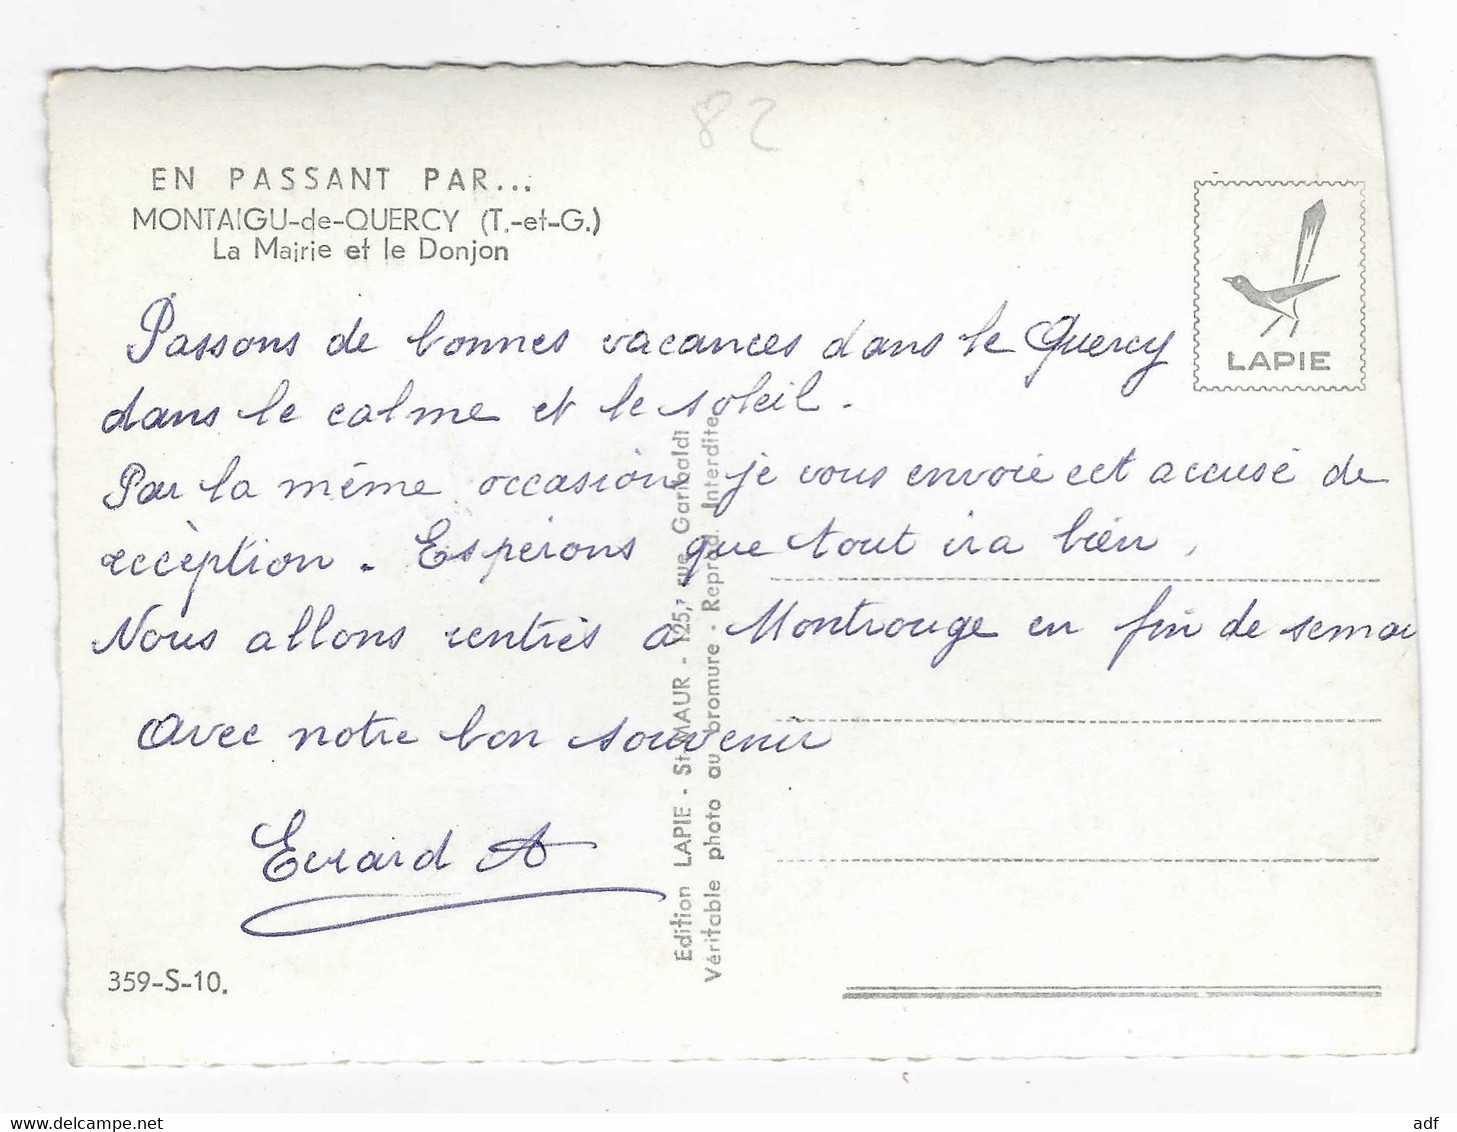 82
EN PASSANT PAR...
MONTAIGU-de-QUERCY (T.-et-G.)
La Mairie et le Donjon
LAPIE
Passons de bonnes vacances dans le Quercy
dans le calme et le soleil.
Par la même occasion je vous envoie cet accusé de
recèption. Espérons que tout ira bien,
Nous allons rentrés a Montrouge en fin de semai
Avec notre bon souvenir
Evrard A
Edition LAPIE - St-MAUR - 125, rue Garibaldi
Véritable photo au bromure - Reprod. Interdite
359-S-10.
www.delcampe.net
adf